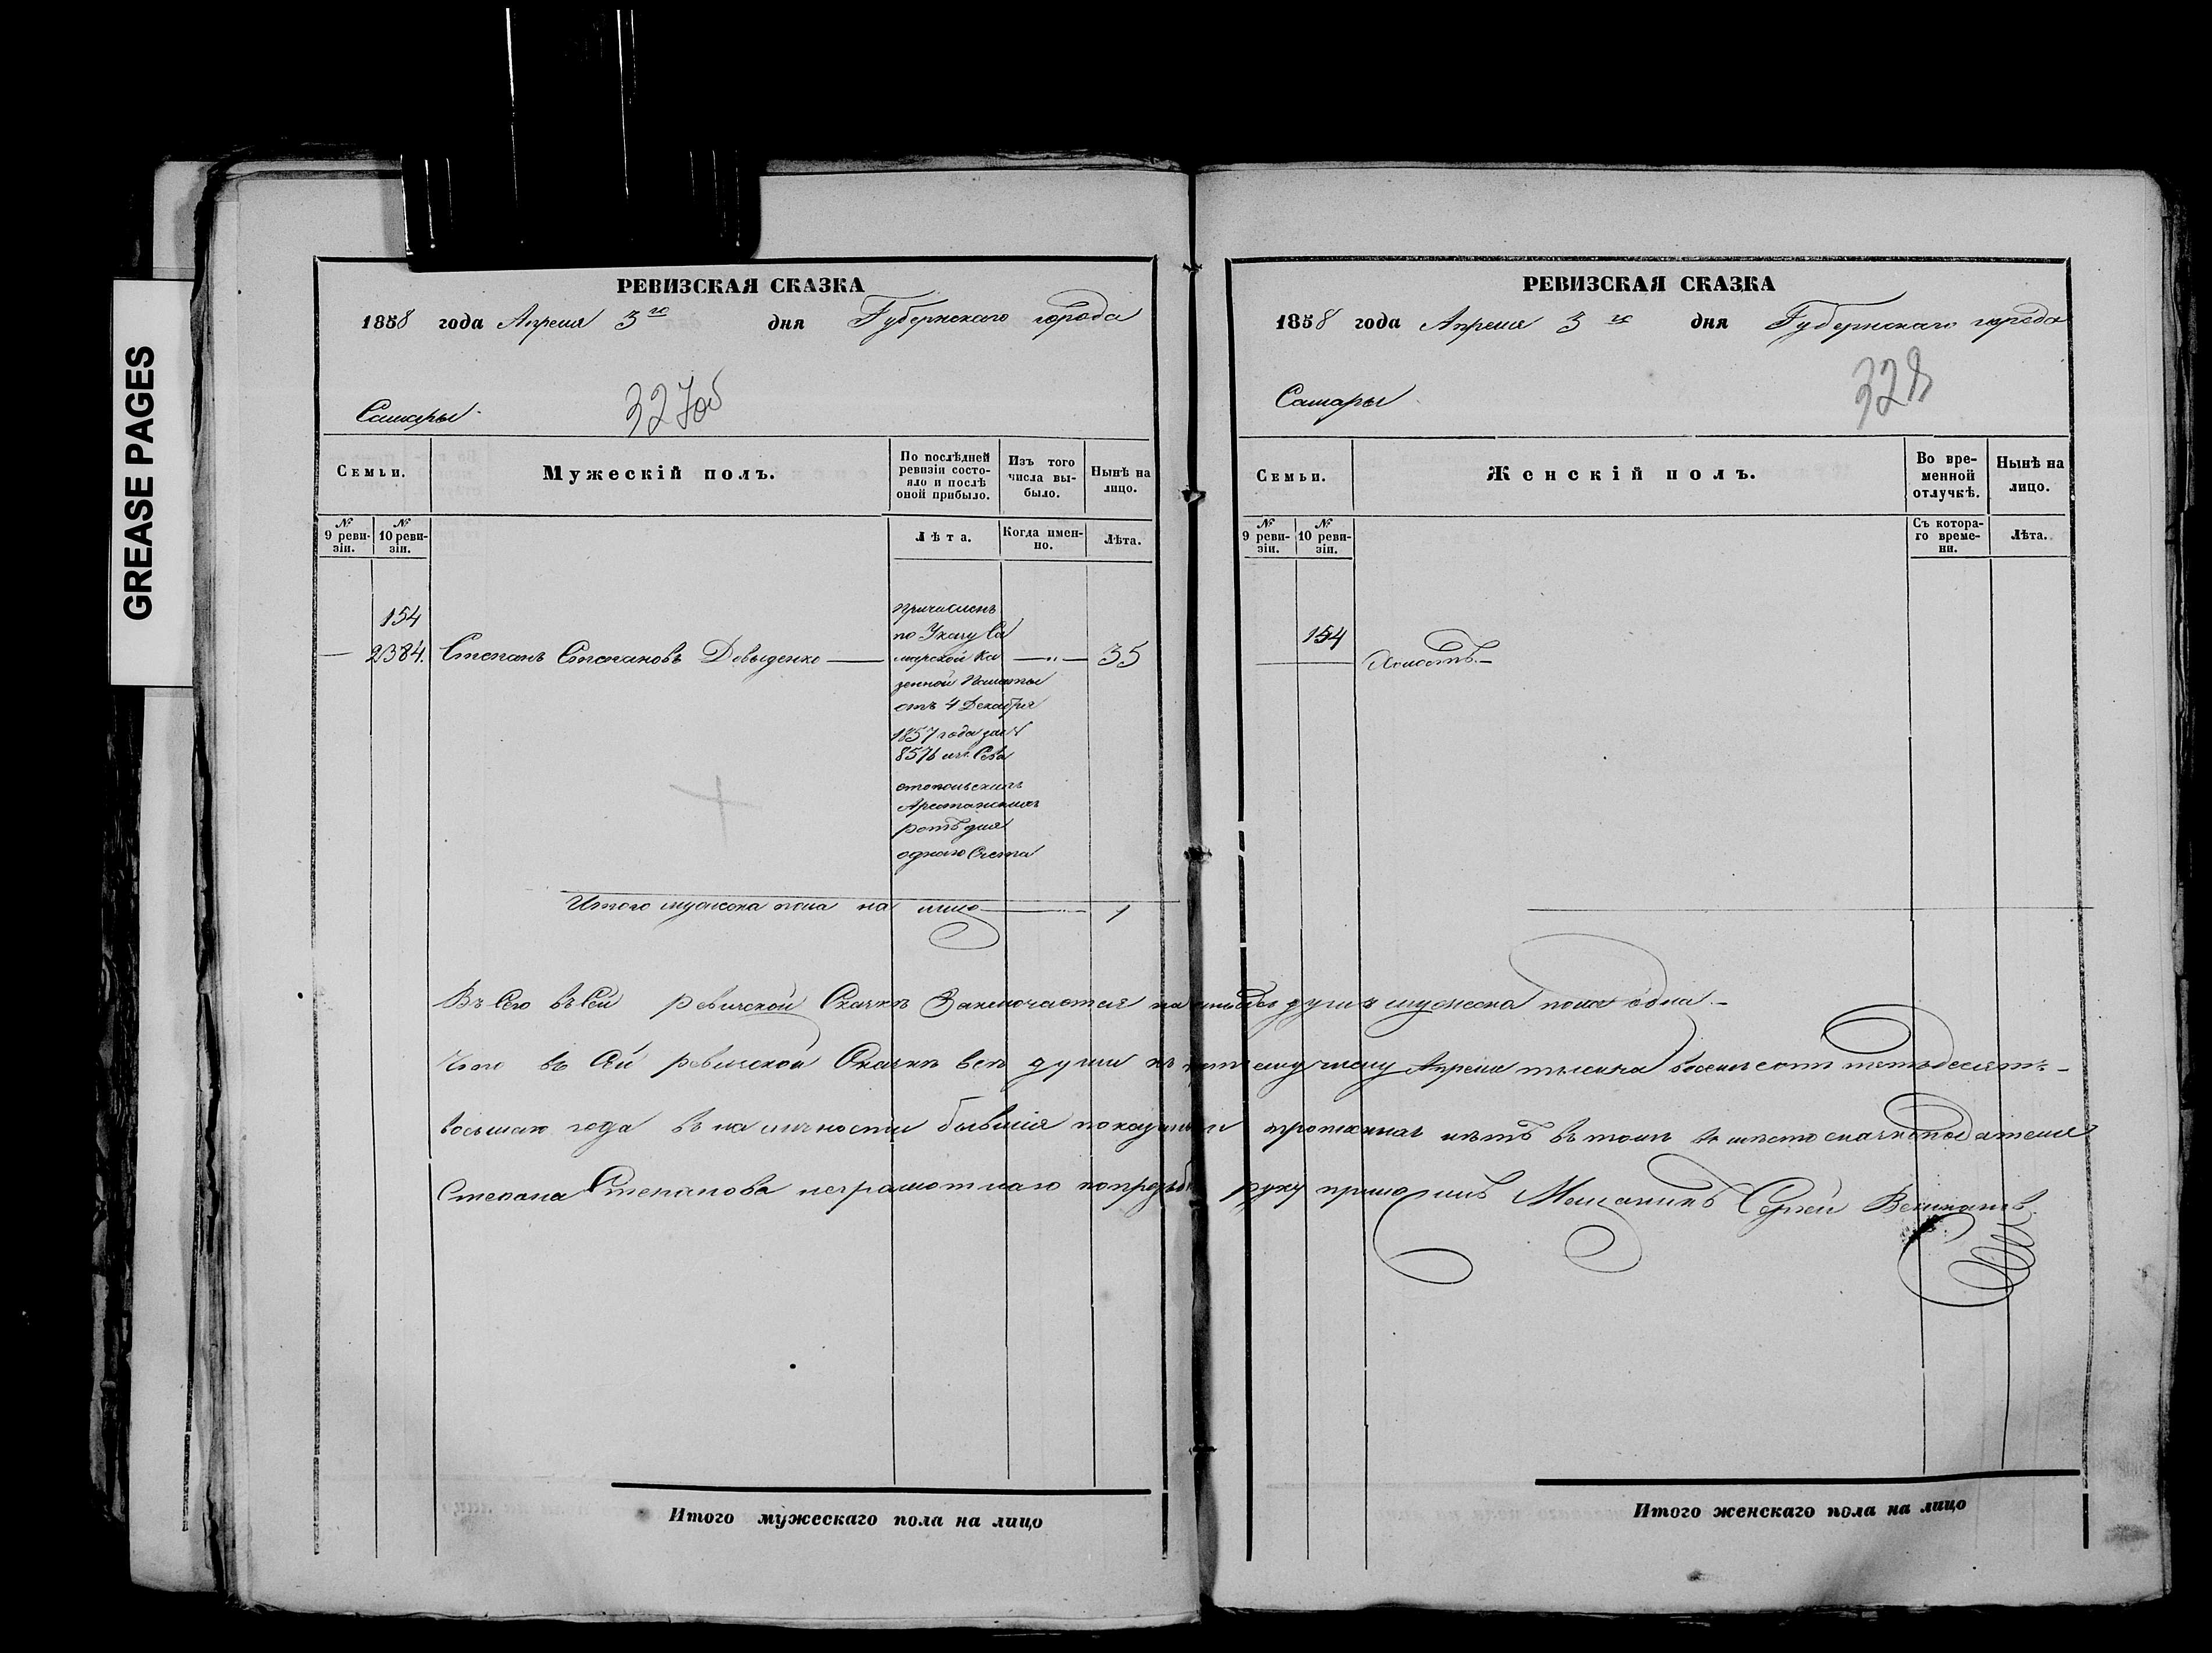 GREASE PAGES
РЕВИЗСКАЯ СКАЗКА
1858 года Апреля 3го дня Губернскаго города
Самары
327об
Семьи.
Мужескій полъ.
По послѣдней ревизіи состояло и послѣ оной прибыло.
Изъ того числа выбыло.
Нынѣ на лицо.
№ 9 ревизіи.
№ 10 ревизіи.
Лѣта.
Когда именно.
Лѣта.
154
2384. Степанъ Степановъ Довыденко — 35
причисленъ
по Указу Са
марской Ка
зенной Палаты
отъ 4 Декабря
1857 года за №
8576 изъ Сева
стопольскихъ
Арестанскихъ
ротъ для
одного Счета
Итого мужеска пола на лицо 1
РЕВИЗСКАЯ СКАЗКА
1858 года Апреля 3го дня Губернскаго города
Самары
328
Семьи.
Женскій полъ.
Во временной отлучкѣ.
Нынѣ на лицо.
№ 9 ревизіи.
№ 10 ревизіи.
Съ котораго времени.
Лѣта.
154
Холостъ.
Въ Сей ревизской Сказкѣ Заключается на лицо душъ мужеска пола одна.
Что въ Сей ревизской Сказкѣ всѣ души къ Апреля тысяча восемь сотъ пятьдесятъ
восьмаго года въ наличности бывшія показаны и прописныхъ нѣтъ въ томъ в мѣсто сказкоподателя
Степана Степанова неграмотнаго по прозьбѣ руку приложилъ Мещанинъ Сергей
Итого мужескаго пола на лицо
Итого женскаго пола на лицо